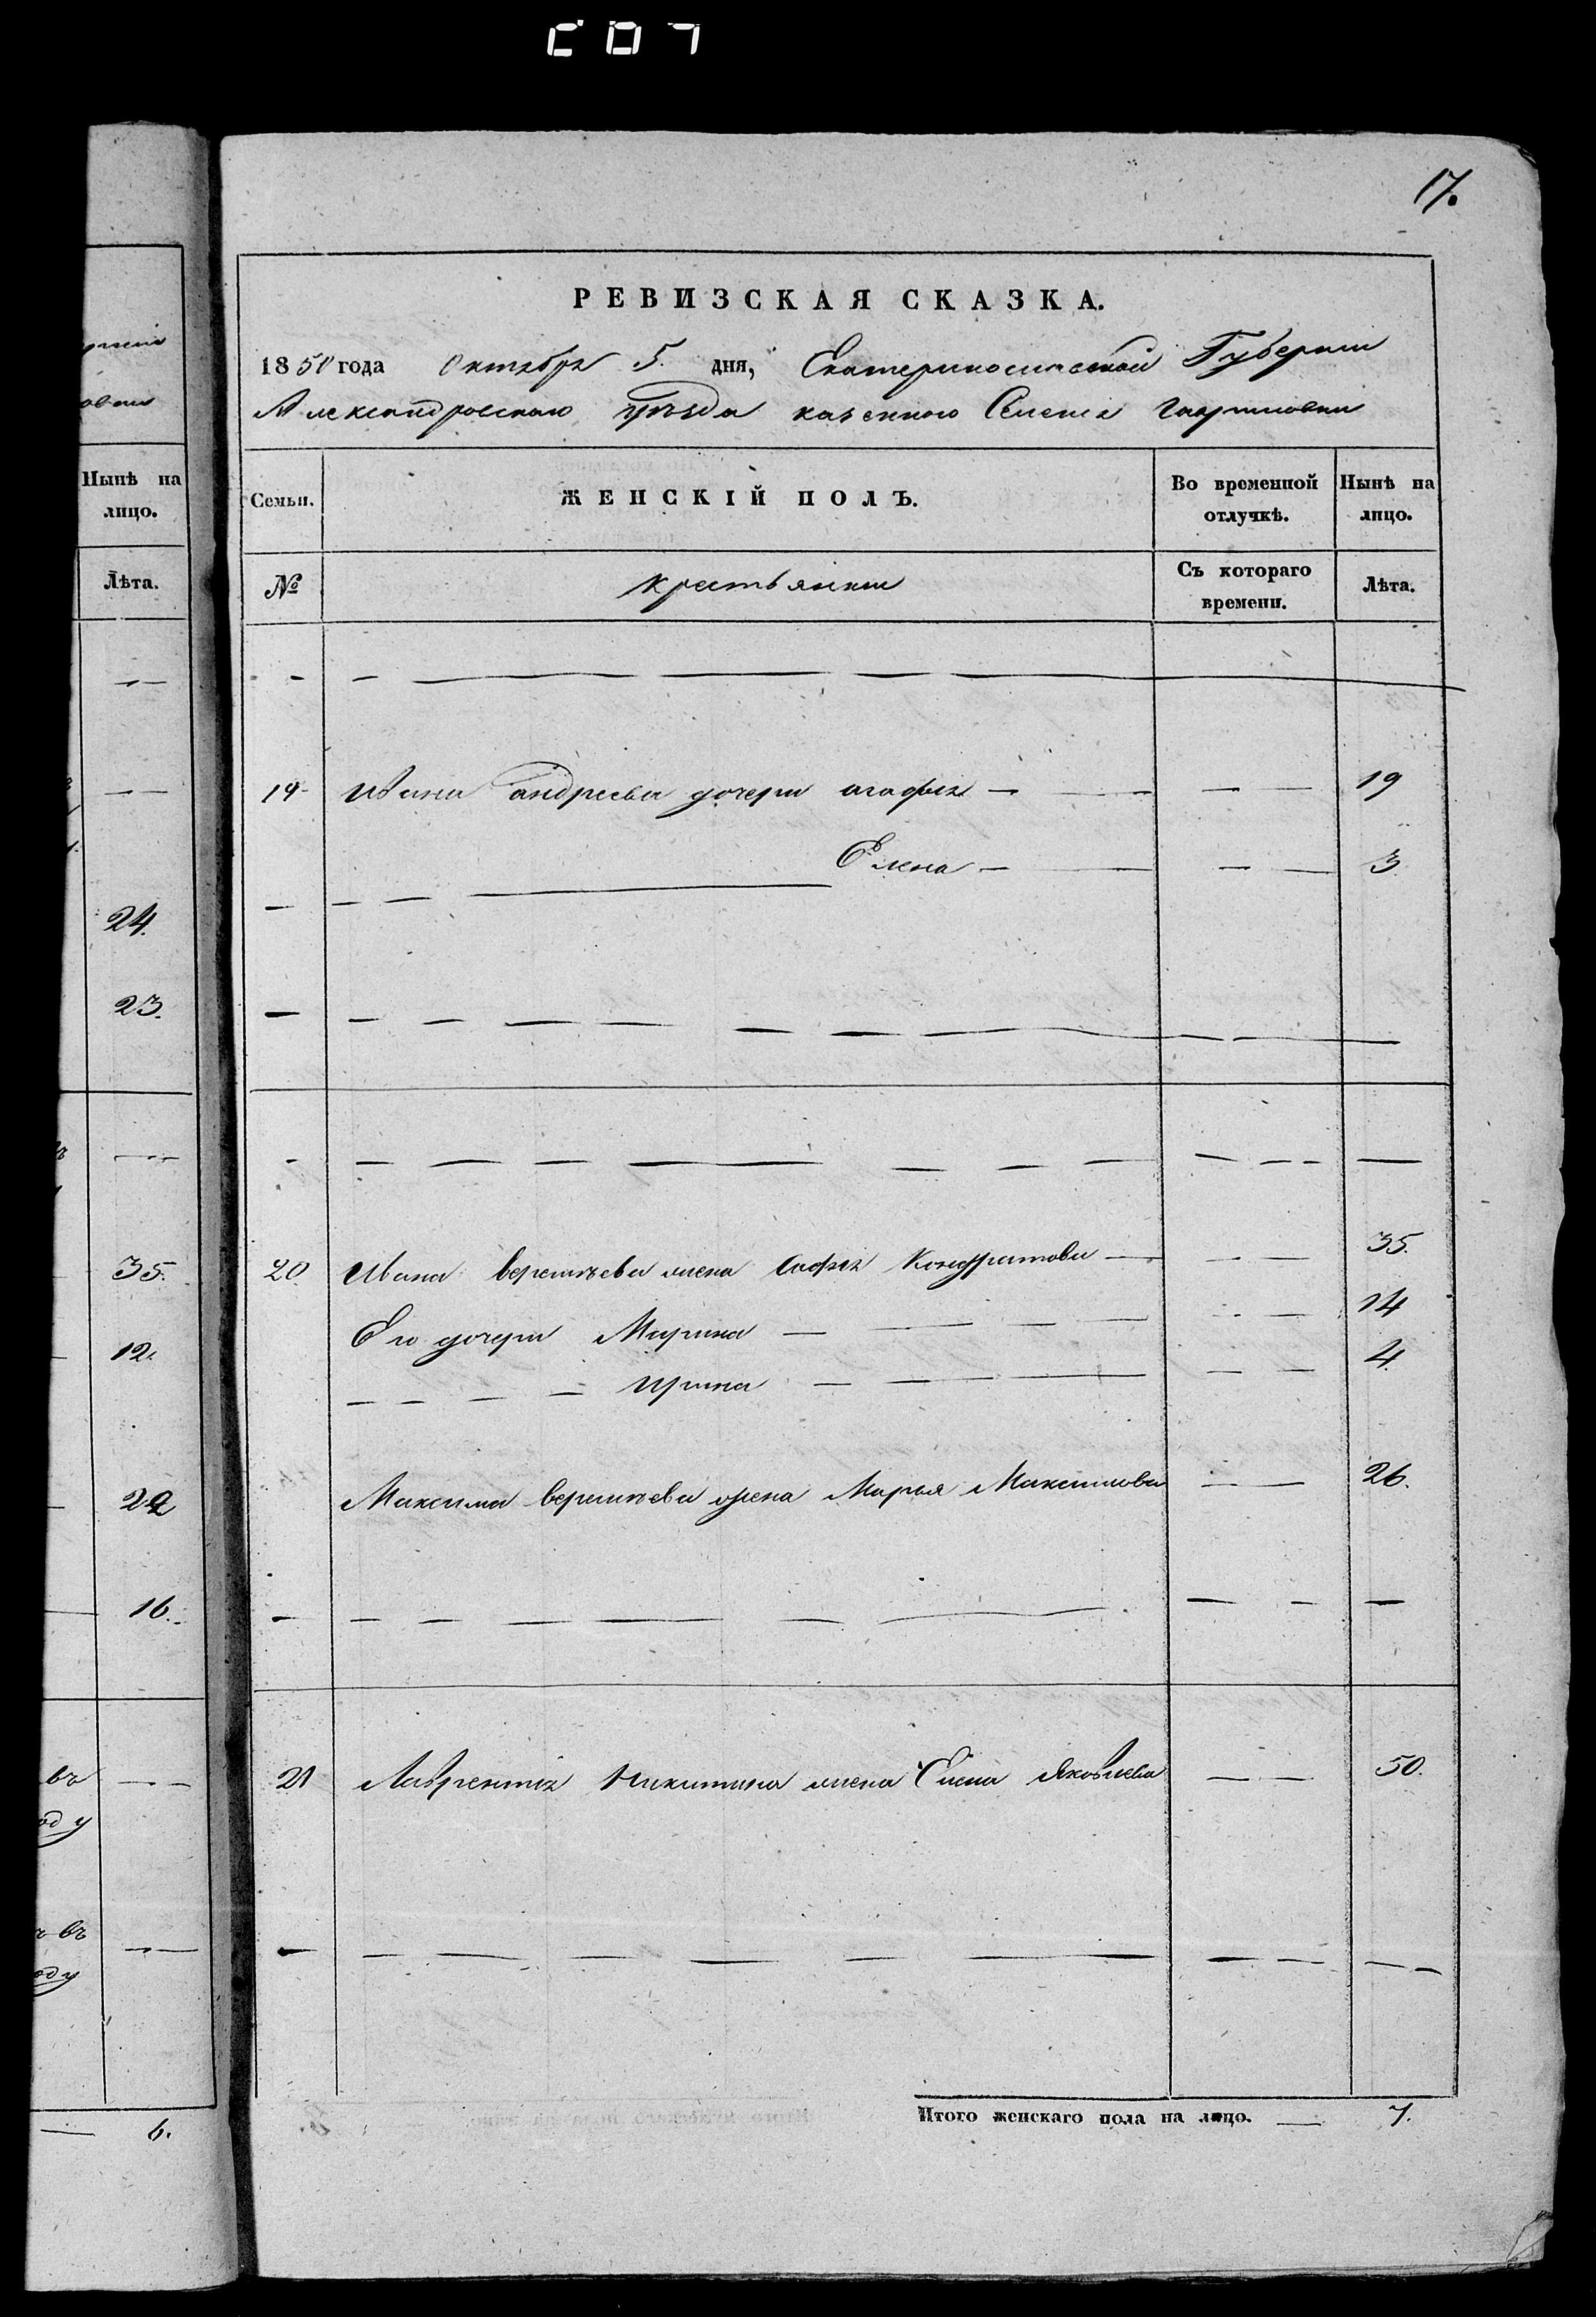 17.
РЕВИЗСКАЯ СКАЗКА.
1850 года Октября 5. дня, Екатеринославской Губернии
Александровского уѣзда казенного Селения Гавриловки
Семьи. ЖЕНСКІЙ ПОЛЪ. Во временной отлучкѣ. Нынѣ на лицо.
№ Крестьянки Съ котораго времени. Лѣта.
19 Ивана андреева дочери агафия 19
Елена 3
20 Ивана вереитеева жена София Кондратова 35.
Его дочери Марина 14
Ирина 4.
Максима вереитеева жена Марья Максимова 26.
21 Лаврентия Никитина жена Елена Яковлева 50.
Итого женскаго пола на лицо. 7.
Нынѣ на
лицо.
Лѣта.
24.
23.
35.
12.
22
16.
въ
оду
въ
оду
6.